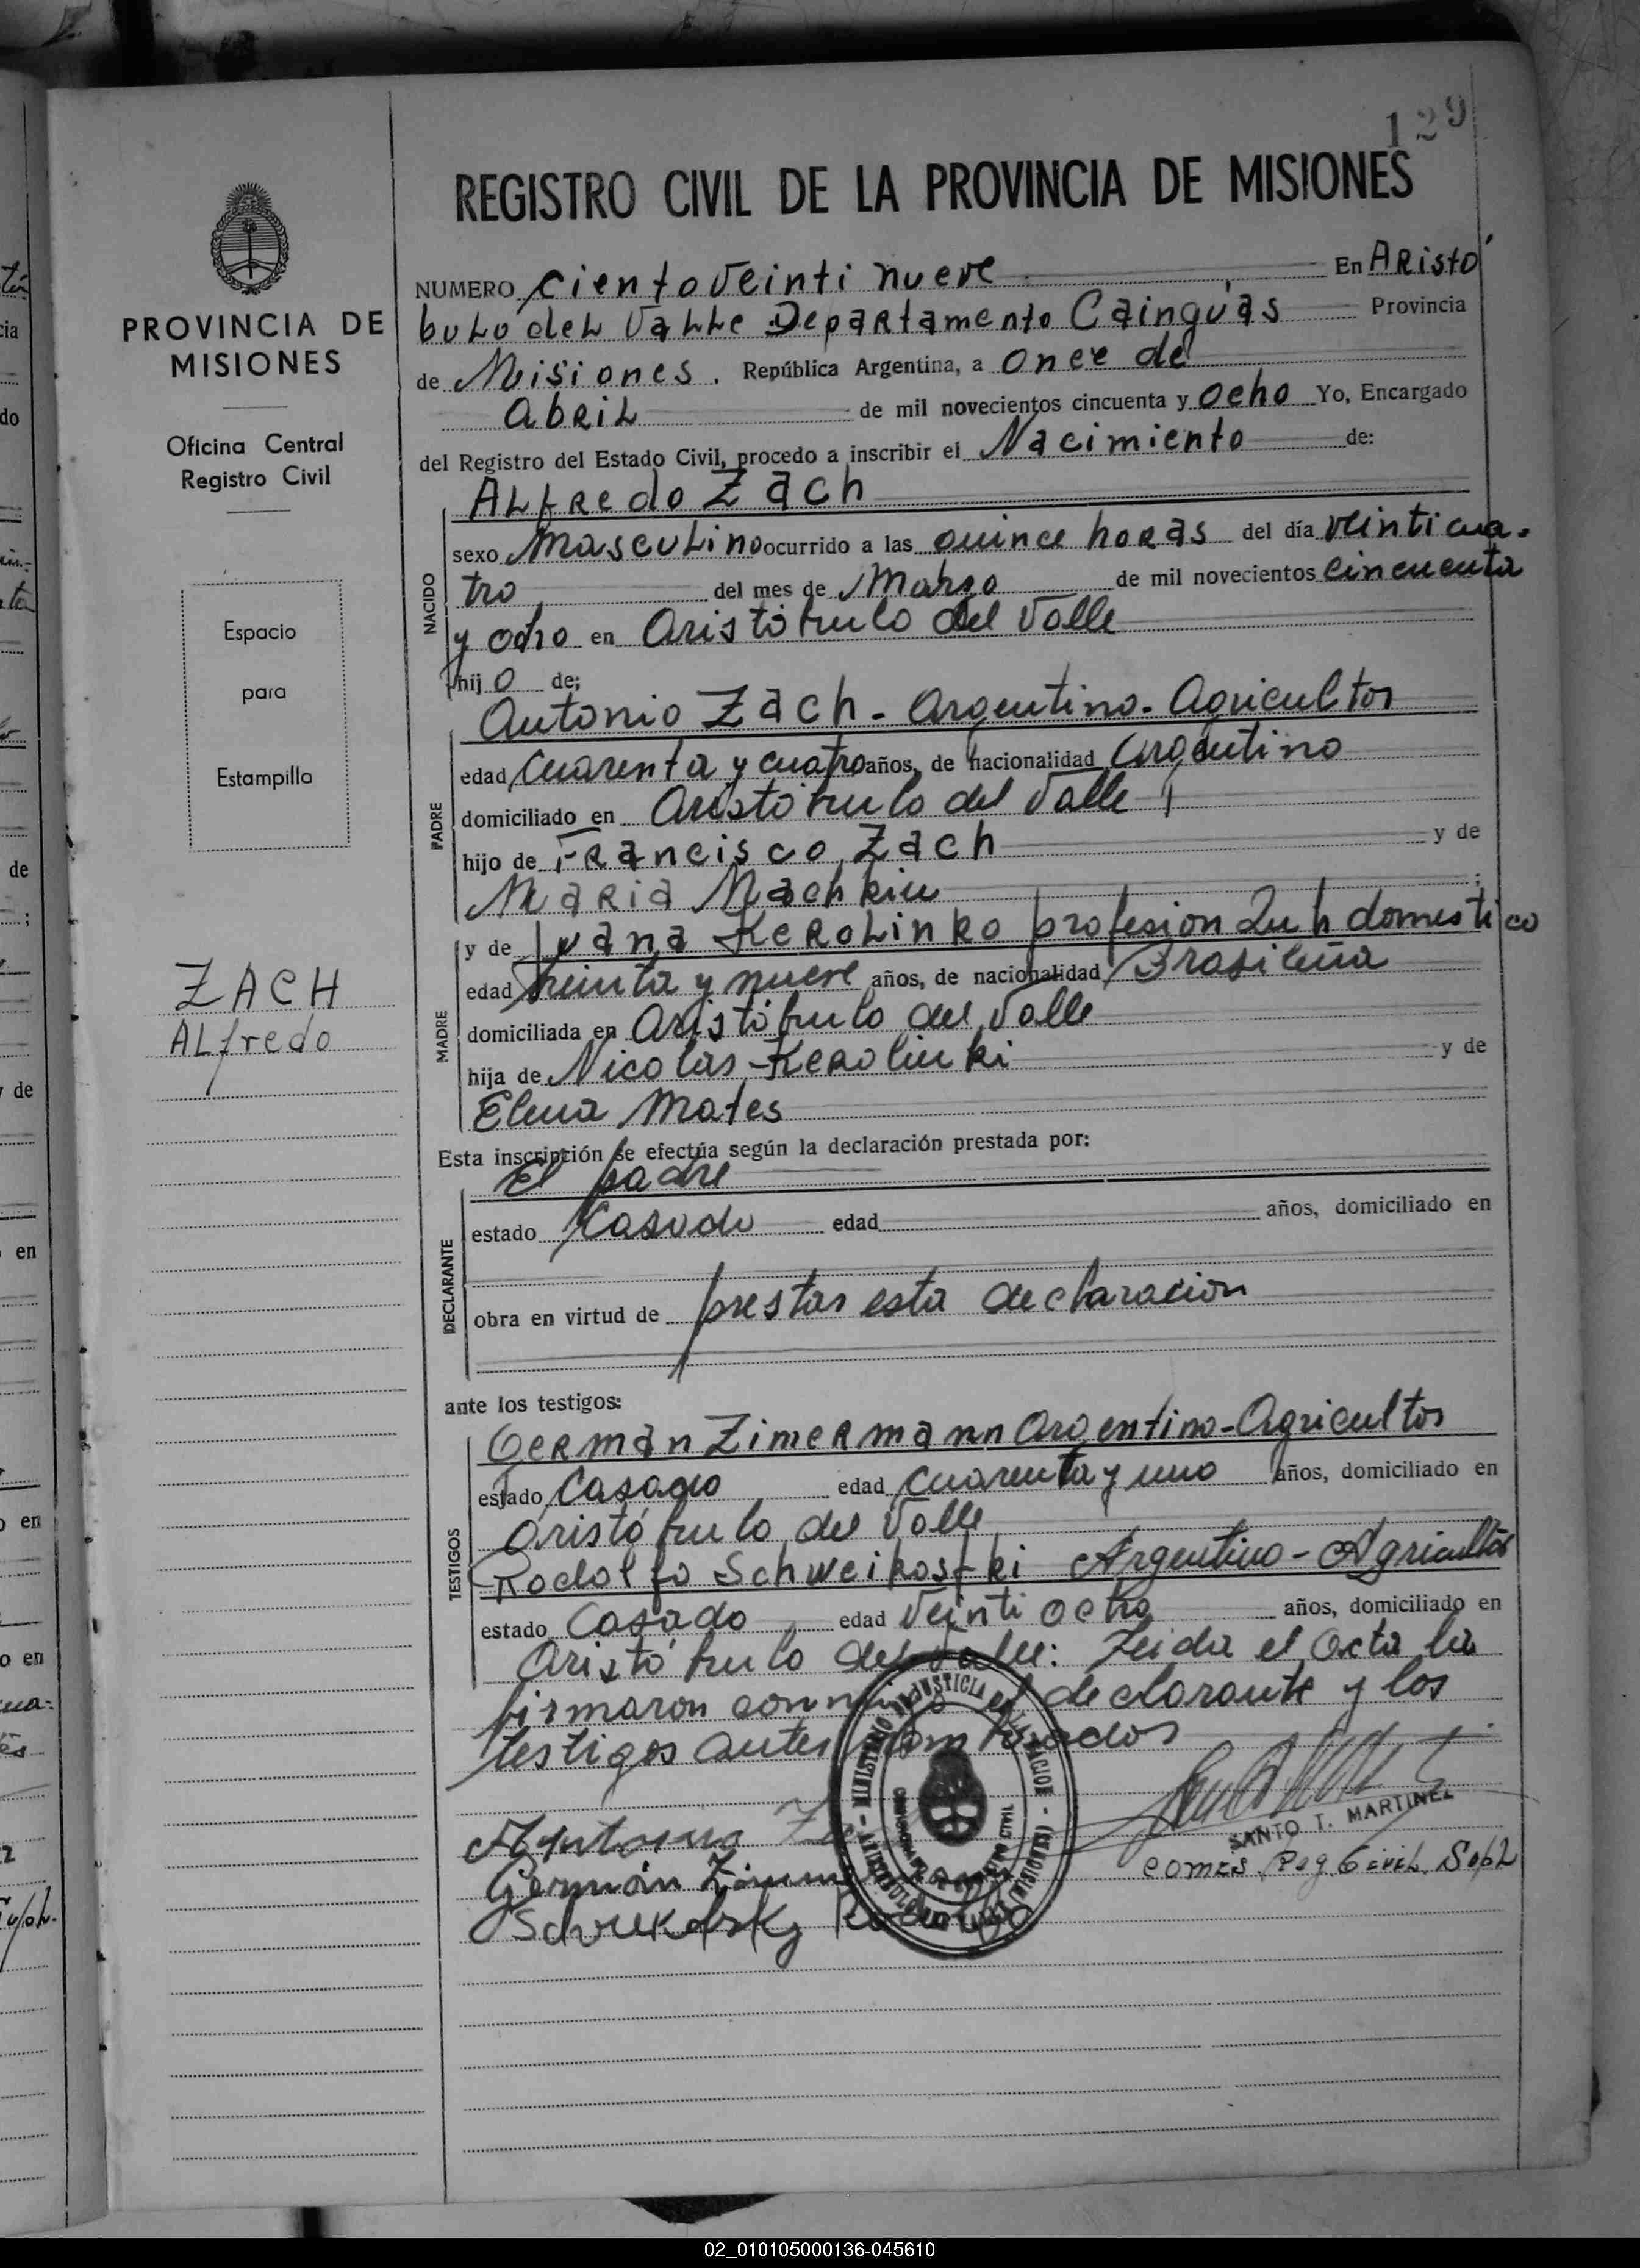 129
REGISTRO CIVIL DE LA PROVINCIA DE MISIONES
PROVINCIA DE
MISIONES
Oficina Central
Registro Civil
Espacio
para
Estampilla
ZACH
ALfredo
NUMERO Ciento Veinti nueve En ARistó
buLo deL VaLLe Departamento Cainguás Provincia
de Misiones. República Argentina, a once de
abRiL de mil novecientos cincuenta y ocho Yo, Encargado
del Registro del Estado Civil, procedo a inscribir el Nacimiento de:
NACIDO
ALfRedo Zach
sexo MascuLino ocurrido a las quince hoRas del día veinticua-
tro del mes de Marzo de mil novecientos cincuenta
y ocho en Aristóbulo del Valle
hijo de:
PADRE
Antonio Zach - Argentino - Agricultor
edad Cuarenta y cuatro años, de nacionalidad Argentino
domiciliado en Aristóbulo del Valle
hijo de FRancisco Zach y de
MaRia Machkiu ;
MADRE
y de Juana KeRoLinKo profesion Quh domestico
edad treinta y nueve años, de nacionalidad Brasileña
domiciliada en Aristóbulo del Valle
hija de Nicolas Kerolinki y de
Elena Mates
Esta inscripción se efectúa según la declaración prestada por:
DECLARANTE
El padre
estado Casado edad años, domiciliado en
obra en virtud de prestar esta declaracion
ante los testigos:
TESTIGOS
GeRman ZimeRmann Argentino - Agricultor
estado Casado edad cuarenta y uno años, domiciliado en
Aristóbulo del Valle
Rodolfo Schweikostki Argentino - Agricultor
estado Casado edad Veinti ocho años, domiciliado en
Aristóbulo del Valle: Leida el Acta la
firmaron conmigo el declarante y los
testigos antes nombrados
Antonio
Germán
Rodolfo
SANTO T. MARTINEZ
MINISTERIO DE JUSTICIA DE LA NACION
02_010105000136-045610